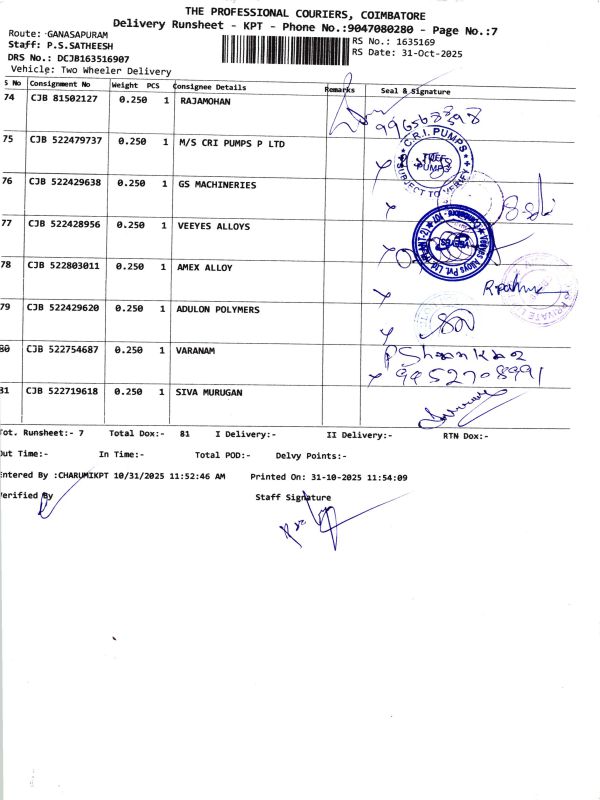 THE PROFESSIONAL COURIERS, COIMBATORE
Delivery Runsheet - KPT - Phone No.:9047080280 - Page No.:7
Route: GANASAPURAM
Staff: P.S.SATHEESH
DRS No.: DCJB163516907
Vehicle: Two Wheeler Delivery
RS No.: 1635169
RS Date: 31-Oct-2025
S No Consignment No Weight PCS Consignee Details Remarks Seal & Signature
74 CJB 81502127 0.250 1 RAJAMOHAN
75 CJB 522479737 0.250 1 M/S CRI PUMPS P LTD
C.R.I. PUMPS
SUBJECT TO VERIFY
76 CJB 522429638 0.250 1 GS MACHINERIES
77 CJB 522428956 0.250 1 VEEYES ALLOYS
Veeyes Alloys Pvt. Ltd.
78 CJB 522803011 0.250 1 AMEX ALLOY
79 CJB 522429620 0.250 1 ADULON POLYMERS
80 CJB 522754687 0.250 1 VARANAM
9952708991
81 CJB 522719618 0.250 1 SIVA MURUGAN
Tot. Runsheet:- 7 Total Dox:- 81 I Delivery:- II Delivery:- RTN Dox:-
Out Time:- In Time:- Total POD:- Delvy Points:-
Entered By :CHARUMIKPT 10/31/2025 11:52:46 AM Printed On: 31-10-2025 11:54:09
Verified By Staff Signature